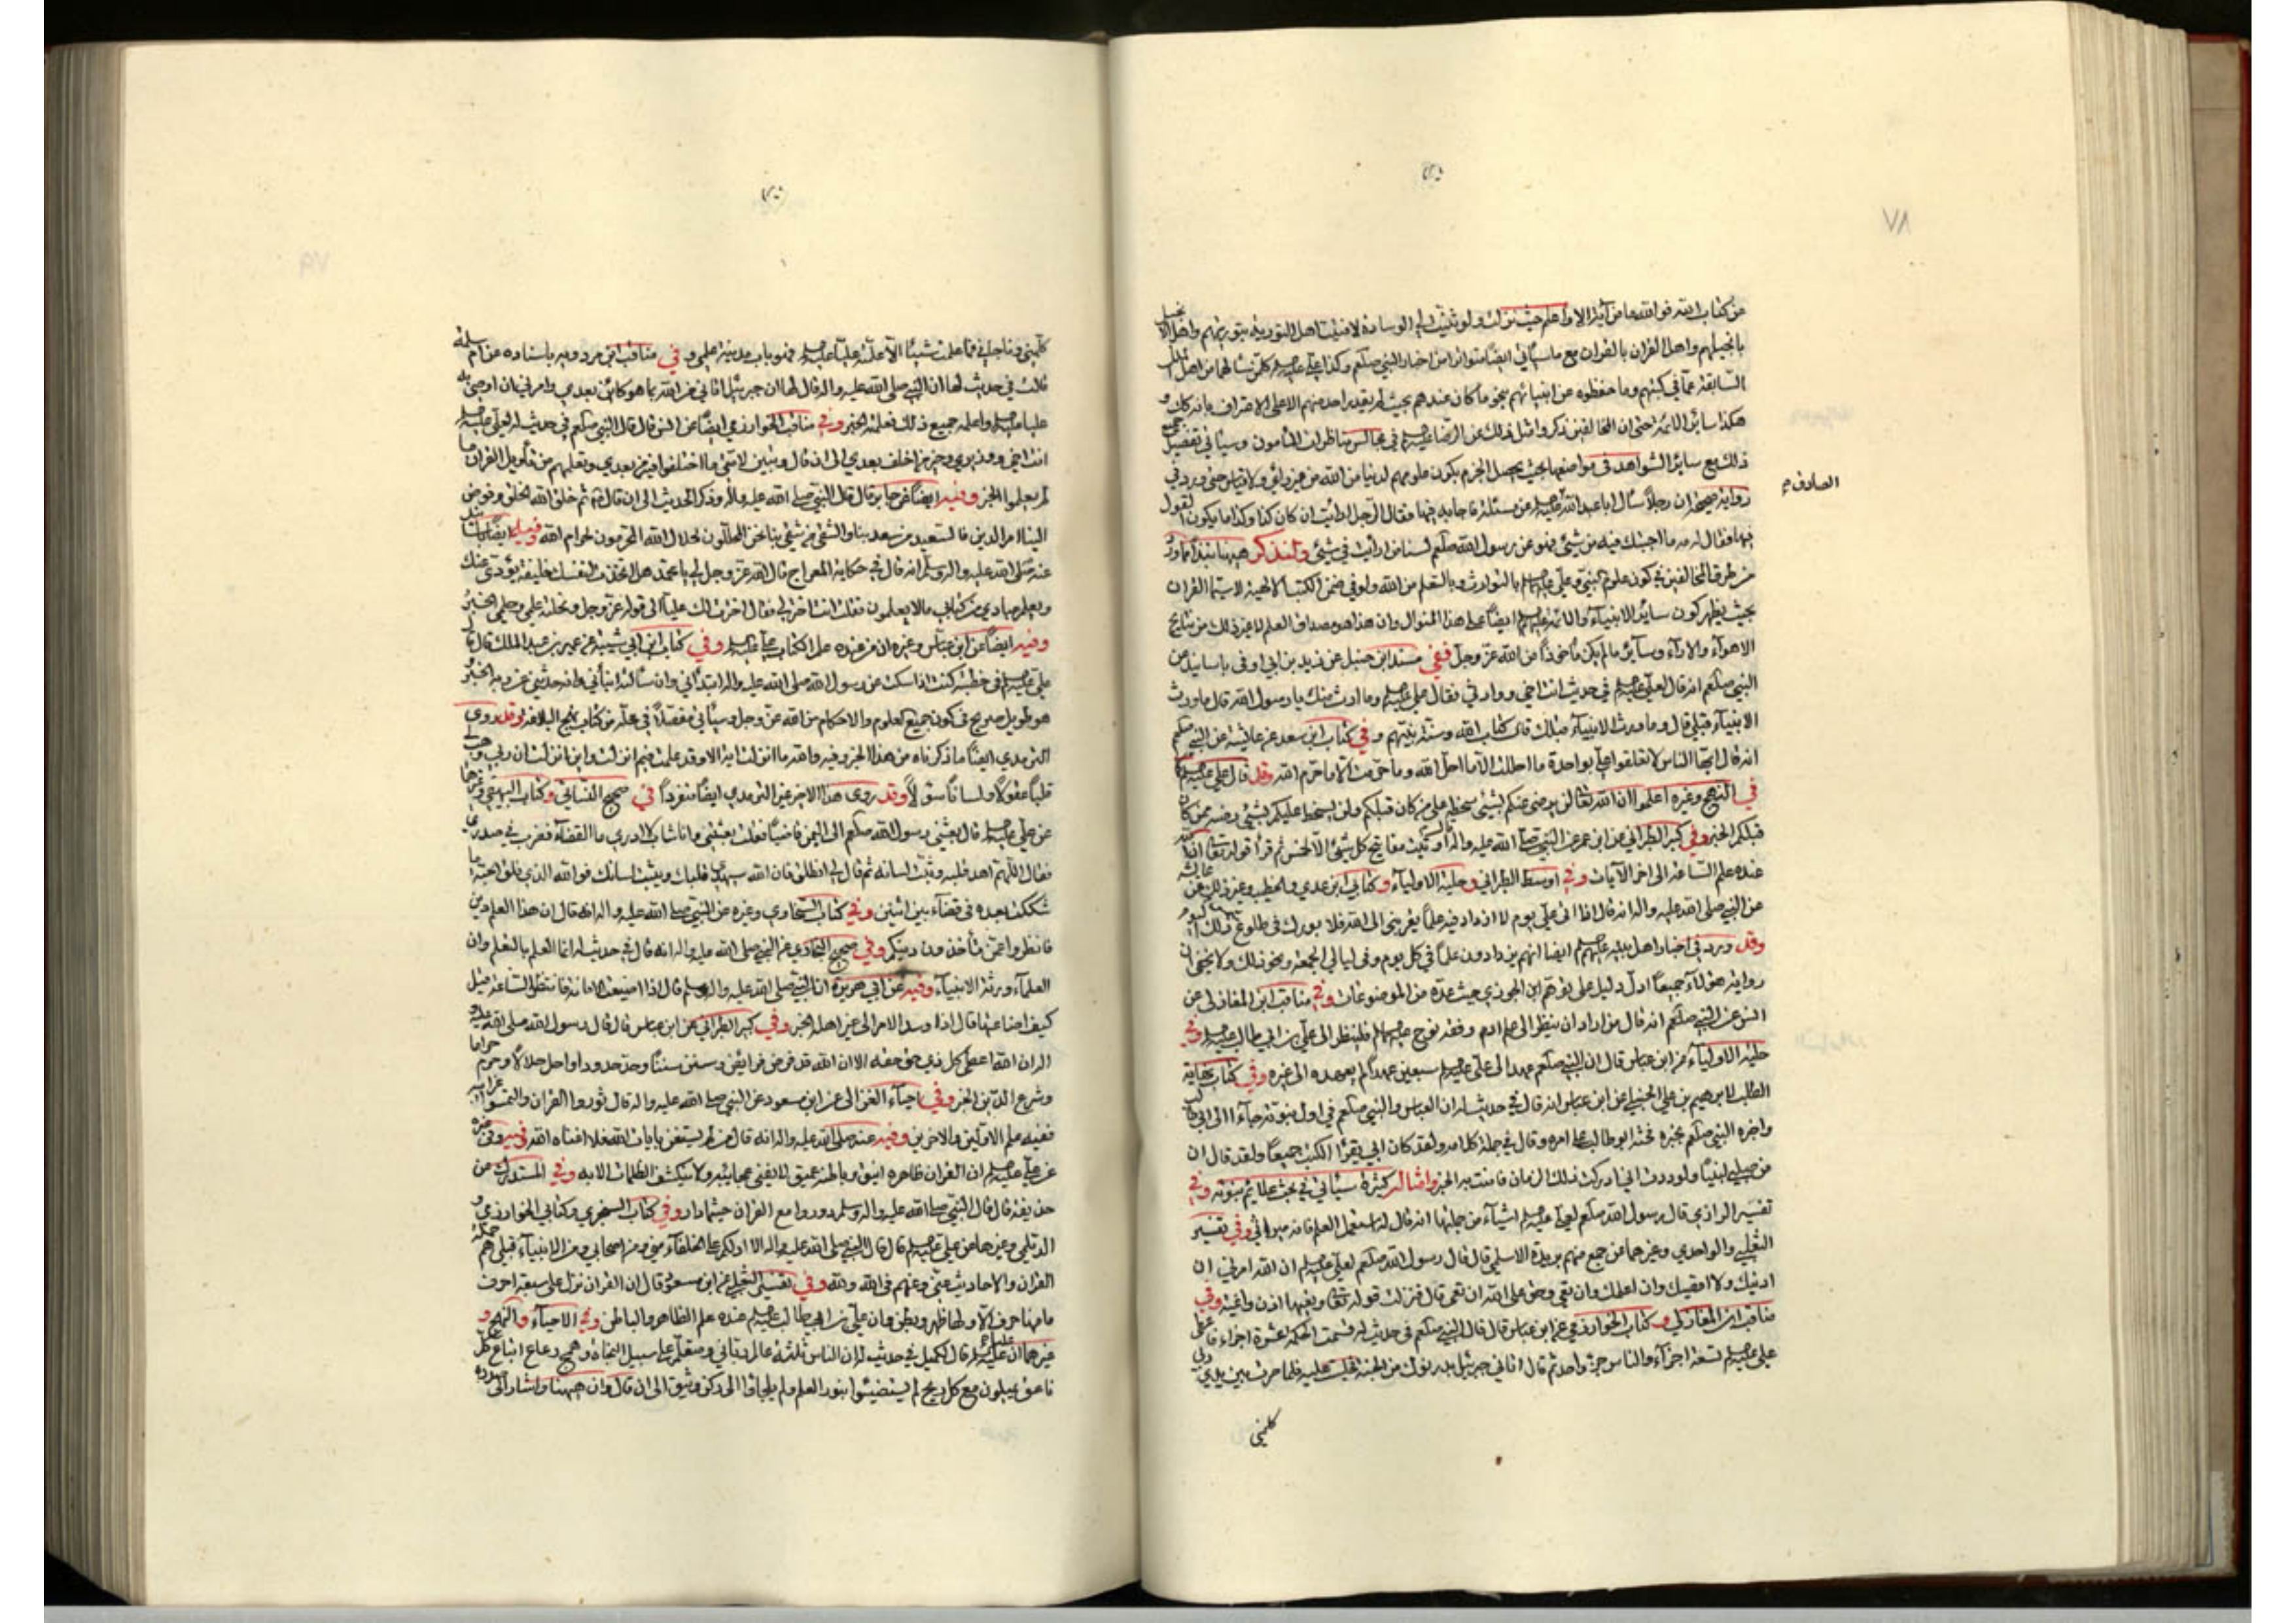 من كتاب الله فوالله ما من آية الا وانا اعلم حيث نزلت ولو ثنيت لي الوسادة لافتيت اهل التورية بتوريتهم واهل الانجيل
بانجيلهم واهل القران بالقران مع ما سيأتي ايضا متواترا من اخبار النبي صلعم وكذا علي عليه السلم كلما يسألهما من اهل الملل
السابقة عما في كتبهم وما حفظوه من انبيائهم بنحو ما كان عندهم بحيث لم يقدر احد منهم الا على الاعتراف بانه كان و
هكذا سائر الائمة حتى ان المخالفين ذكروا مثل ذلك عن الرضا عليه السلم في مجالس مناظرات المأمون وسيأتي تفصيل جميع
ذلك مع سائر الشواهد في مواضعها بحيث يحصل الجزم بكون علومهم لدنيا من الله من غير رأي ولا قياس حتى ورد في
رواية صحيحة ان رجلا سأل ابا عبد الله عليه السلم عن مسئلة فاجابه فيها فقال الرجل ارايت ان كان كذا وكذا ما يكون القول
فيها فقال له مه ما اجبتك فيه من شئ فهو عن رسول الله صلعم لسنا من ارأيت في شئ ولنذكر هيهنا نبذا مما ورد
من طرق المخالفين في كون علوم النبي وعلي عليهما السلم بالتوارث وبالتعلم من الله ولو في ضمن الكتب الالهية لا سيما القران
بحيث يظهر كون ساير الانبياء والائمة عليهم السلم ايضا على هذا المنوال وان هذا هو مصداق العلم لا غير ذلك من نتايج
الاهواء والاراء وسائر ما لم يكن مأخوذا من الله عز وجل ففي مسند ابن حنبل عن زيد بن ابي اوفى باسانيد عن
النبي صلعم انه قال لعلي عليه السلم في حديث انت اخي ووارثي فقال علي عليه السلم وما ارث منك يا رسول الله قال ما ورث
الانبياء قبلي قال وما ورث الانبياء قبلك قال كتاب الله وسنة نبيهم وفي كتاب ابن سعد عن عائشة عن النبي صلعم
انه قال ايها الناس لا تعلقوا علي بواحدة ما احللت الا ما احل الله وما حرمت الا ما حرم الله وقد قال علي عليه السلم
في النهج وغيره اعلموا ان الله تعالى لن يرضى عنكم بشئ سخطه على من كان قبلكم ولن يسخط عليكم بشئ رضيه ممن كان
قبلكم الخبر وفي كبير الطبراني عن ابن عمر عن النبي صلى الله عليه واله اوتيت مفاتيح كل شئ الا الخمس ثم قرأ قوله تعالى ان الله
عنده علم الساعة الى اخر الآيات وفي اوسط الطبراني وحلية الاولياء وكتابي ابن عدي والخطيب وغير ذلك عن عائشة
عن النبي صلى الله عليه واله انه قال اذا اتى علي يوم لا ازداد فيه علما يقربني الى الله فلا بورك في طلوع ذلك اليوم
وقد ورد في اخبار اهل بيته عليهم السلم ايضا انهم يزدادون علما في كل يوم وفي ليالي الجمعة ونحو ذلك ولا يخفى ان
رواية هؤلاء جميعا ادل دليل على توهم ابن الجوزي حيث عده من الموضوعات وفي مناقب ابن المغازلي عن
انس عن النبي صلعم انه قال من اراد ان ينظر الى علم ادم وفقه نوح عليهما السلم فلينظر الى علي بن ابي طالب عليه السلم وفي
حلية الاولياء عن ابن عباس قال ان النبي صلعم عهد الى علي عليه السلم سبعين عهدا لم يعهده الى غيره وفي كتاب نهاية
الطلب لابرهيم بن علي الحنبلي عن ابن عباس انه قال في حديث له ان العباس والنبي صلعم في اول نبوته جاءا الى ابي طالب
واخبره النبي صلعم بخبره فحثه ابو طالب على امره وقال في جملة كلامه ولقد كان ابي يقرأ الكتب جميعا ولقد قال ان
من صلبي لنبيا ولوددت اني ادركت ذلك الزمان فامنت به الخبر وامثاله كثيرة سيأتي في بحث علايم نبوته وفي
تفسير الرازي قال رسول الله صلعم لعلي عليه السلم اشياء من جملتها انه قال له استعمل العلم فانه ميراثي وفي تفسير
الثعلبي والواحدي وغيرهما عن جمع منهم بريدة الاسلمي قال قال رسول الله صلعم لعلي عليه السلم ان الله امرني ان
ادنيك ولا اقصيك وان اعلمك وان تعي وحق على الله ان تعي قال فنزلت قوله تعالى وتعيها اذن واعية وفي
مناقب ابن المغازلي وكتاب الخوارزمي عن ابن عباس قال قال النبي صلعم في حديث له قسمت الحكمة عشرة اجزاء فاعطى
علي عليه السلم تسعة اجزاء والناس جزء واحد ثم قال اتاني جبرئيل بدرنوك من الجنة فجلست عليه فلما صرت بين يدي ربي
كلمني
الصادق ع
٨٧
كلمني وناجاني فما علمت شيئا الا علمته عليا عليه السلم فهو باب مدينة علمي وفي مناقب ابن مردويه باسناده عن ام سلمة
قالت في حديث لها ان النبي صلى الله عليه واله قال لها ان جبرئيل اتاني من الله بما هو كائن بعدي وامرني ان اوصي به
عليا عليه السلم واعلمه جميع ذلك فعلمته الخبر وفي مناقب الخوارزمي ايضا عن انس قال قال النبي صلعم في حديث له لعلي عليه السلم
انت اخي ووزيري وخير من اخلف بعدي الى ان قال وتبين لامتي ما اختلفوا فيه من بعدي وتعلمهم من تأويل القران ما
لم يعلموا الخبر وفيه ايضا عن جابر قال قال النبي صلى الله عليه واله وذكر الحديث الى ان قال ثم خلق الله الخلق وفوض
الينا امر الدين فالسعيد من سعد بنا والشقي من شقي بنا نحن المحللون لحلال الله المحرمون لحرام الله وفيه ايضا
عنه صلى الله عليه واله وسلم انه قال في حكاية المعراج قال الله عز وجل لي يا محمد هل اتخذت لنفسك خليفة يؤدي عنك
ويعلم عبادي من كتابي ما لا يعلمون فقلت انت اختر لي فقال اخترت لك عليا الى قوله عز وجل ونحلته علمي وحلمي الخبر
وفيه ايضا عن ابن عباس وغيره ان من عنده علم الكتاب علي عليه السلم وفي كتاب ابن ابي شيبة عن عمير بن عبد الملك قال قال
علي عليه السلم في خطبة كنت اذا سكت عن رسول الله صلى الله عليه واله ابتدأني وان سألته انبأني وانه حدثني عن ربه الخبر
هو طويل صريح في كون جميع العلوم والاحكام من الله عز وجل وسيأتي مفصلا في محله من كتاب نهج البلاغة وقد روى
الترمدي ايضا ما ذكرناه من هذا الخبر وفيه والله ما انزلت اية الا وقد علمت فيم انزلت واين انزلت ان ربي وهب لي
قلبا عقولا ولسانا سؤلا وقد روى هذا الاخير غير الترمدي ايضا منفردا في صحيح النسائي وكتاب البيهقي وغيرهما
عن علي عليه السلم قال بعثني رسول الله صلعم الى اليمن قاضيا فقلت بعثتني وانا شاب لا ادري ما القضاء فضرب في صدري
فقال اللهم اهد قلبه وثبت لسانه ثم قال لي انطلق فان الله سيهدي قلبك ويثبت لسانك فوالله الذي فلق الحبة ما
شككت بعده في قضاء بين اثنين وفي كتاب السخاوي وغيره عن النبي صلى الله عليه واله انه قال ان هذا العلم دين
فانظروا عمن تأخذون دينكم وفي صحيح البخاري عن النبي صلى الله عليه واله انه قال في حديث له انما العلم بالتعلم وان
العلماء ورثة الانبياء وفيه عن ابي هريرة ان النبي صلى الله عليه واله وسلم قال اذا ضيعت الامانة فانتظر الساعة قيل
كيف اضاعتها قال اذا وسد الامر الى غير اهله الخبر وفي كبير الطبراني عن ابن عباس قال قال رسول الله صلى الله عليه و
اله ان الله اعطى كل ذي حق حقه الا ان الله قد فرض فرائض وسنن سننا وحد حدودا واحل حلالا وحرم حراما
وشرع الدين الخبر وفي احياء الغزالي عن ابن مسعود عن النبي صلى الله عليه واله قال ثوروا القران والتمسوا غرائبه
ففيه علم الاولين والاخرين وفيه عنه صلى الله عليه واله انه قال من لم يستغن بايات الله فلا اغناه الله وفيه وفي غيره
عن علي عليه السلم ان القران ظاهره انيق وباطنه عميق لا تفنى عجايبه ولا تنكشف الظلمات الا به وفي المستدرك عن
حذيفة قال قال النبي صلى الله عليه واله وسلم دوروا مع القران حيثما دار وفي كتاب السجزي وكتابي الخوارزمي و
الديلمي وغيرها عن علي عليه السلم قال قال النبي صلى الله عليه واله الا ادلكم على الخلفاء مني ومن اصحابي ومن الانبياء قبلي هم حملة
القران والاحاديث عني وعنهم في الله ولله وفي تفسير الثعلبي عن ابن مسعود قال ان القران نزل على سبعة احرف
ما منها حرف الا ولها ظهر وبطن وان علي بن ابي طالب عليه السلم عنده علم الظاهر والباطن وفي الاحياء والنهج و
غيرهما ان عليا عليه السلم قال لكميل في حديث له ان الناس ثلثة عالم رباني ومتعلم على سبيل النجاة وهمج رعاع اتباع كل
ناعق يميلون مع كل ريح لم يستضيئوا بنور العلم ولم يلجأوا الى ركن وثيق الى ان قال وان هيهنا واشار الى صدره
٧٩